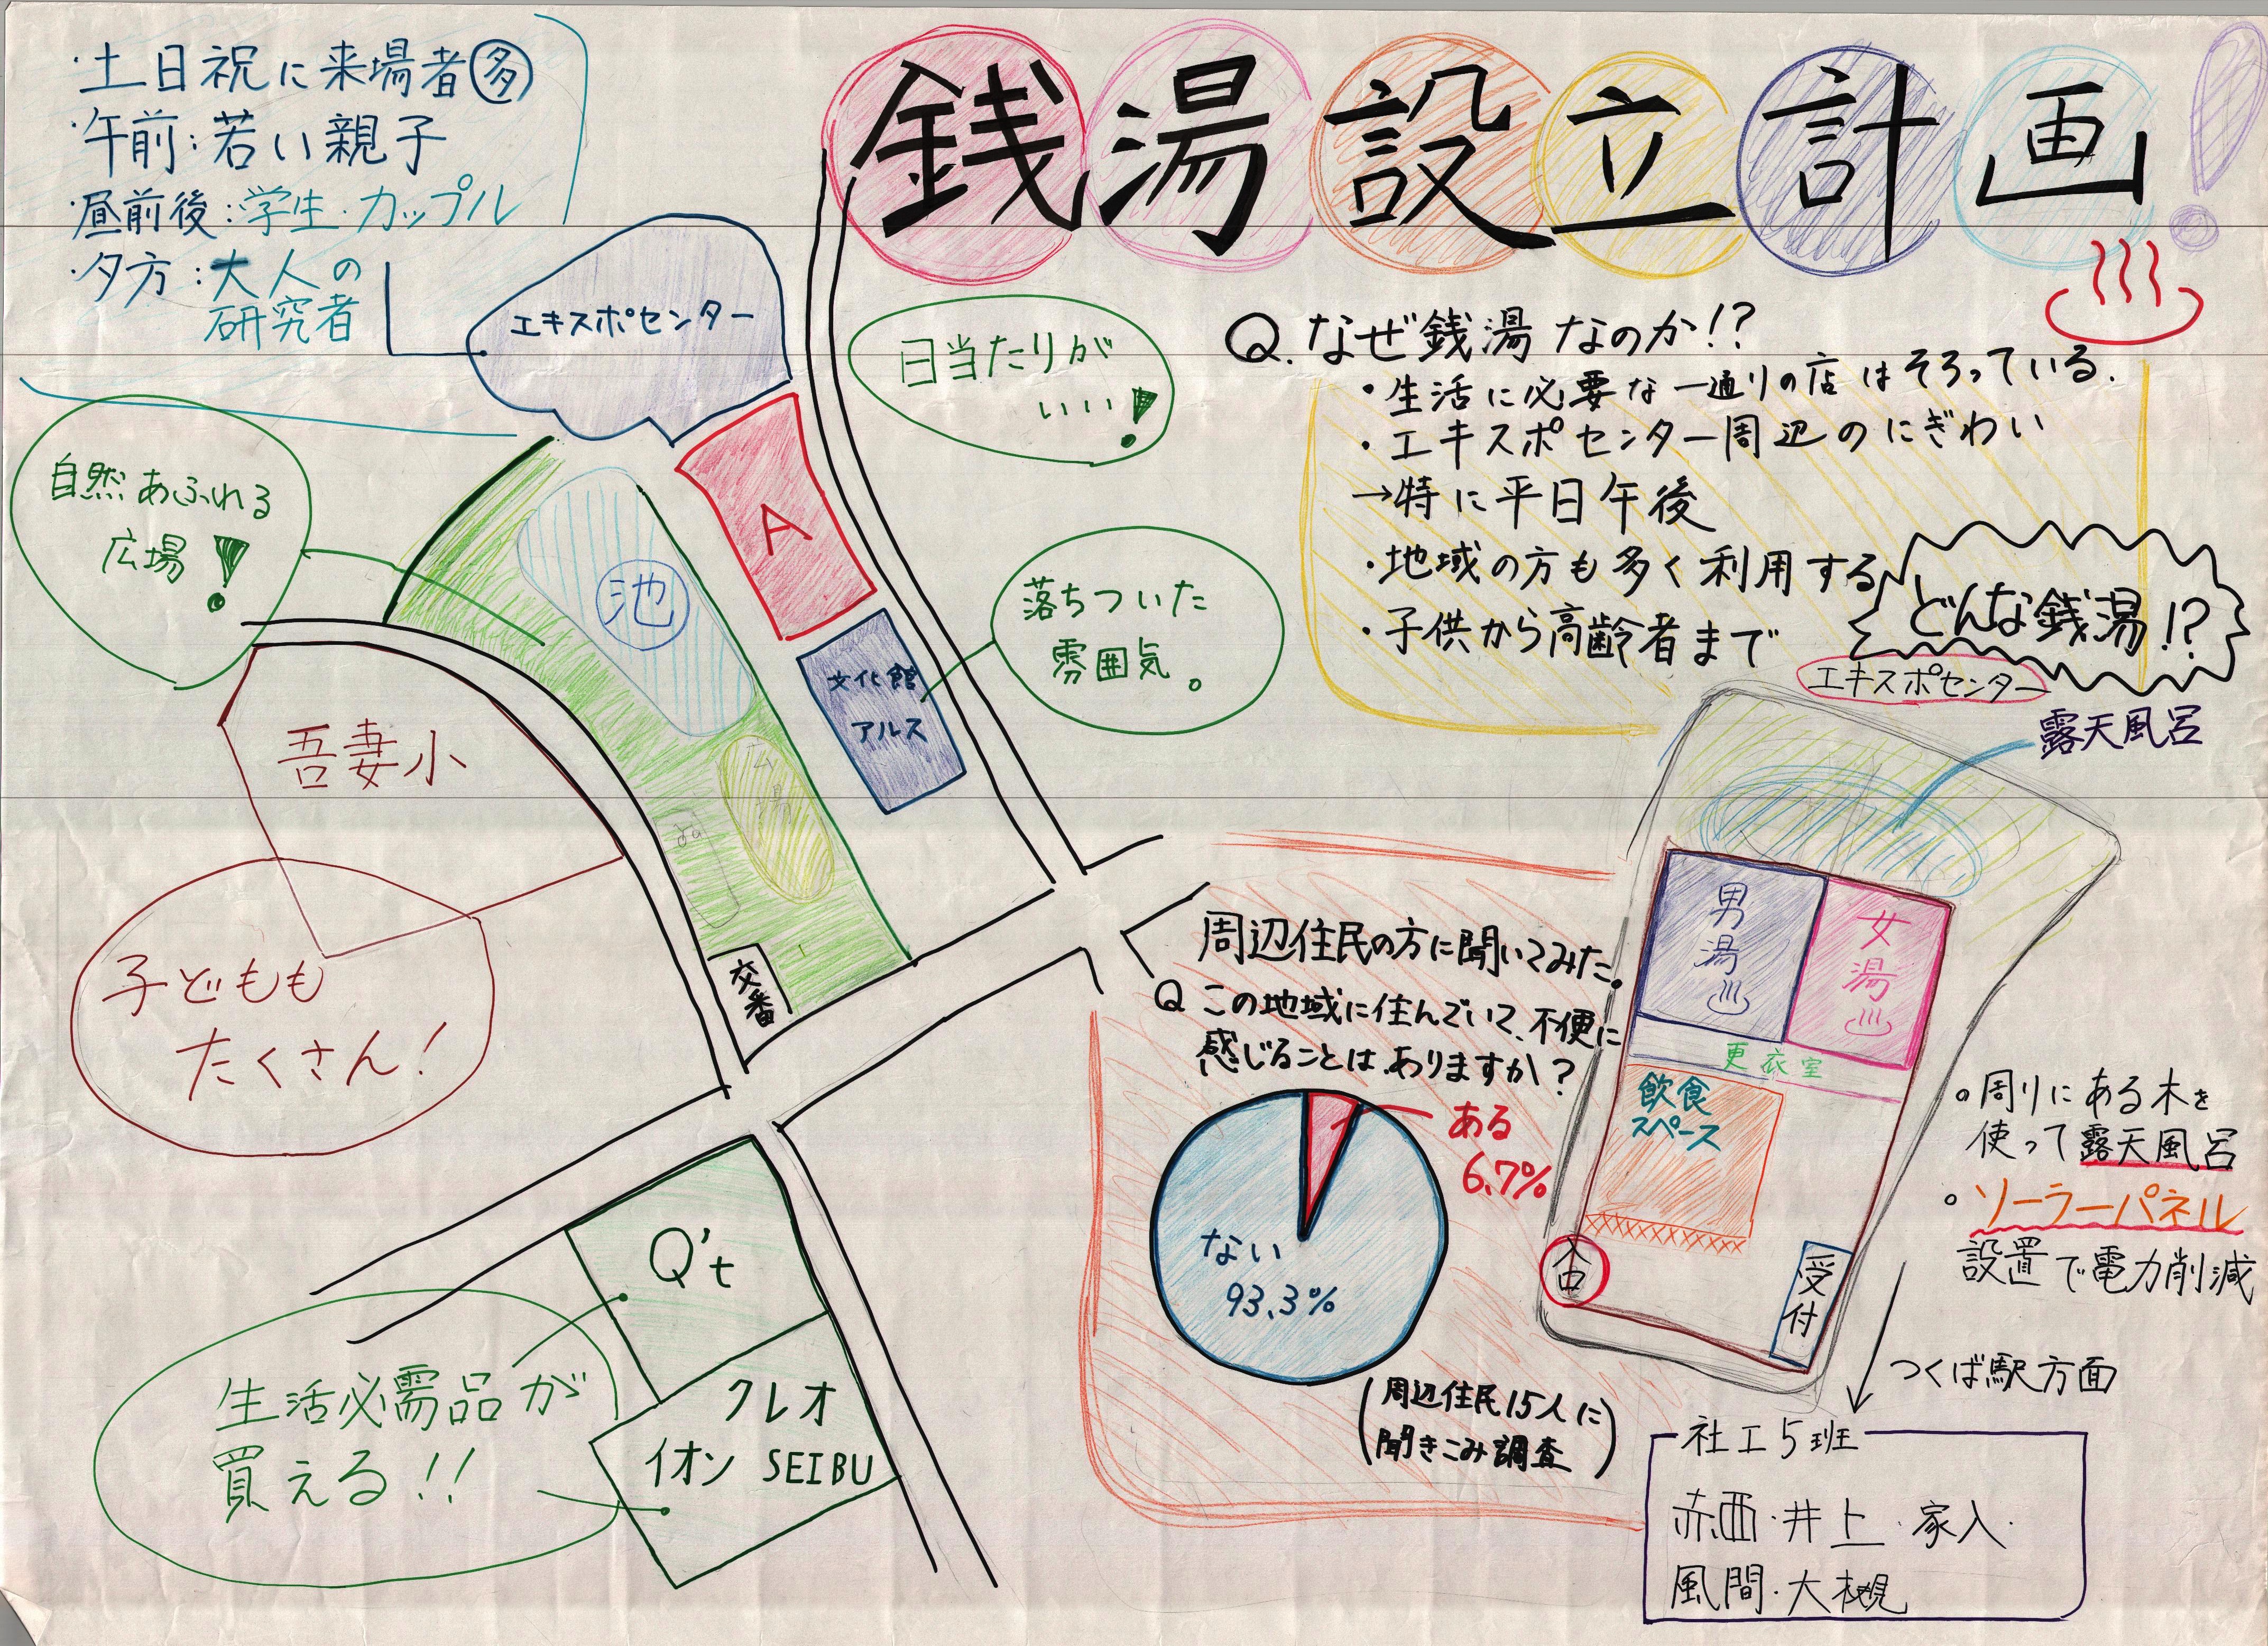 銭湯設立計画!
・土日祝に来場者多
・午前:若い親子
・昼前後:学生・カップル
・夕方:大人の
研究者
エキスポセンター
日当たりが
いい!
自然あふれる
広場!
池
A
落ちついた
雰囲気。
文化館
アルス
広場
吾妻小
子どもも
たくさん!
交番
Q't
クレオ
イオン SEIBU
生活必需品が
買える!!
Q. なぜ銭湯なのか!?
・生活に必要な一通りの店はそろっている.
・エキスポセンター周辺のにぎわい
→特に平日午後
・地域の方も多く利用する
・子供から高齢者まで
どんな銭湯!?
エキスポセンター
露天風呂
男湯
女湯
更衣室
飲食
スペース
入口
受付
。周りにある木を
使って露天風呂
。ソーラーパネル
設置で電力削減
つくば駅方面
周辺住民の方に聞いてみた。
Q この地域に住んでいて、不便に
感じることは、ありますか?
ある
6.7%
ない
93.3%
(周辺住民15人に
聞きこみ調査)
社工5班
赤西・井上・家入・
風間・大槻